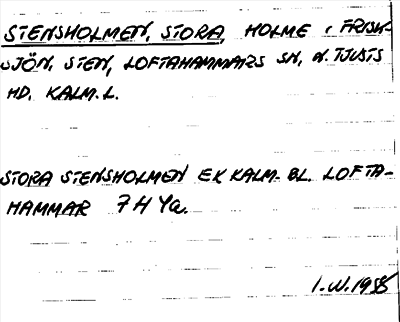 STENSHOLMEN, STORA, HOLME I FRISK-
SJÖN, STEN, LOFTAHAMMARS SN, N. TJUSTS
HD, KALM. L.
STORA STENSHOLMEN EK KALM. BL. LOFTA-
HAMMAR 7H 4a.
I.W. 1955